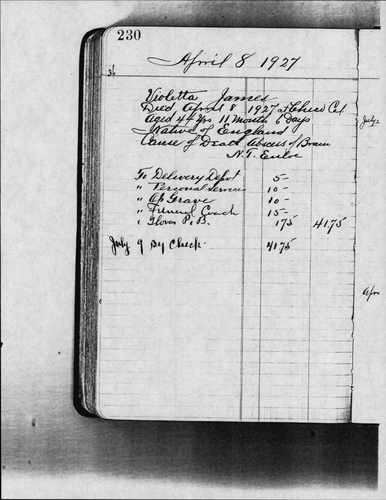 230
April 8 1927
36
Violetta James
Died April 8 1927 Cal
Aged 44 Yrs 11 Month 6 Days
Native of England
Cause of Death Abscess of Brain
N.T. Enloe
To Delivery Depot 5-
" Personal Service 10-
" Op Grave 10-
" Funeral Coach 15-
" Gloves P.B. 1 75 41 75
July 9 By Check 41 75
July
Apr